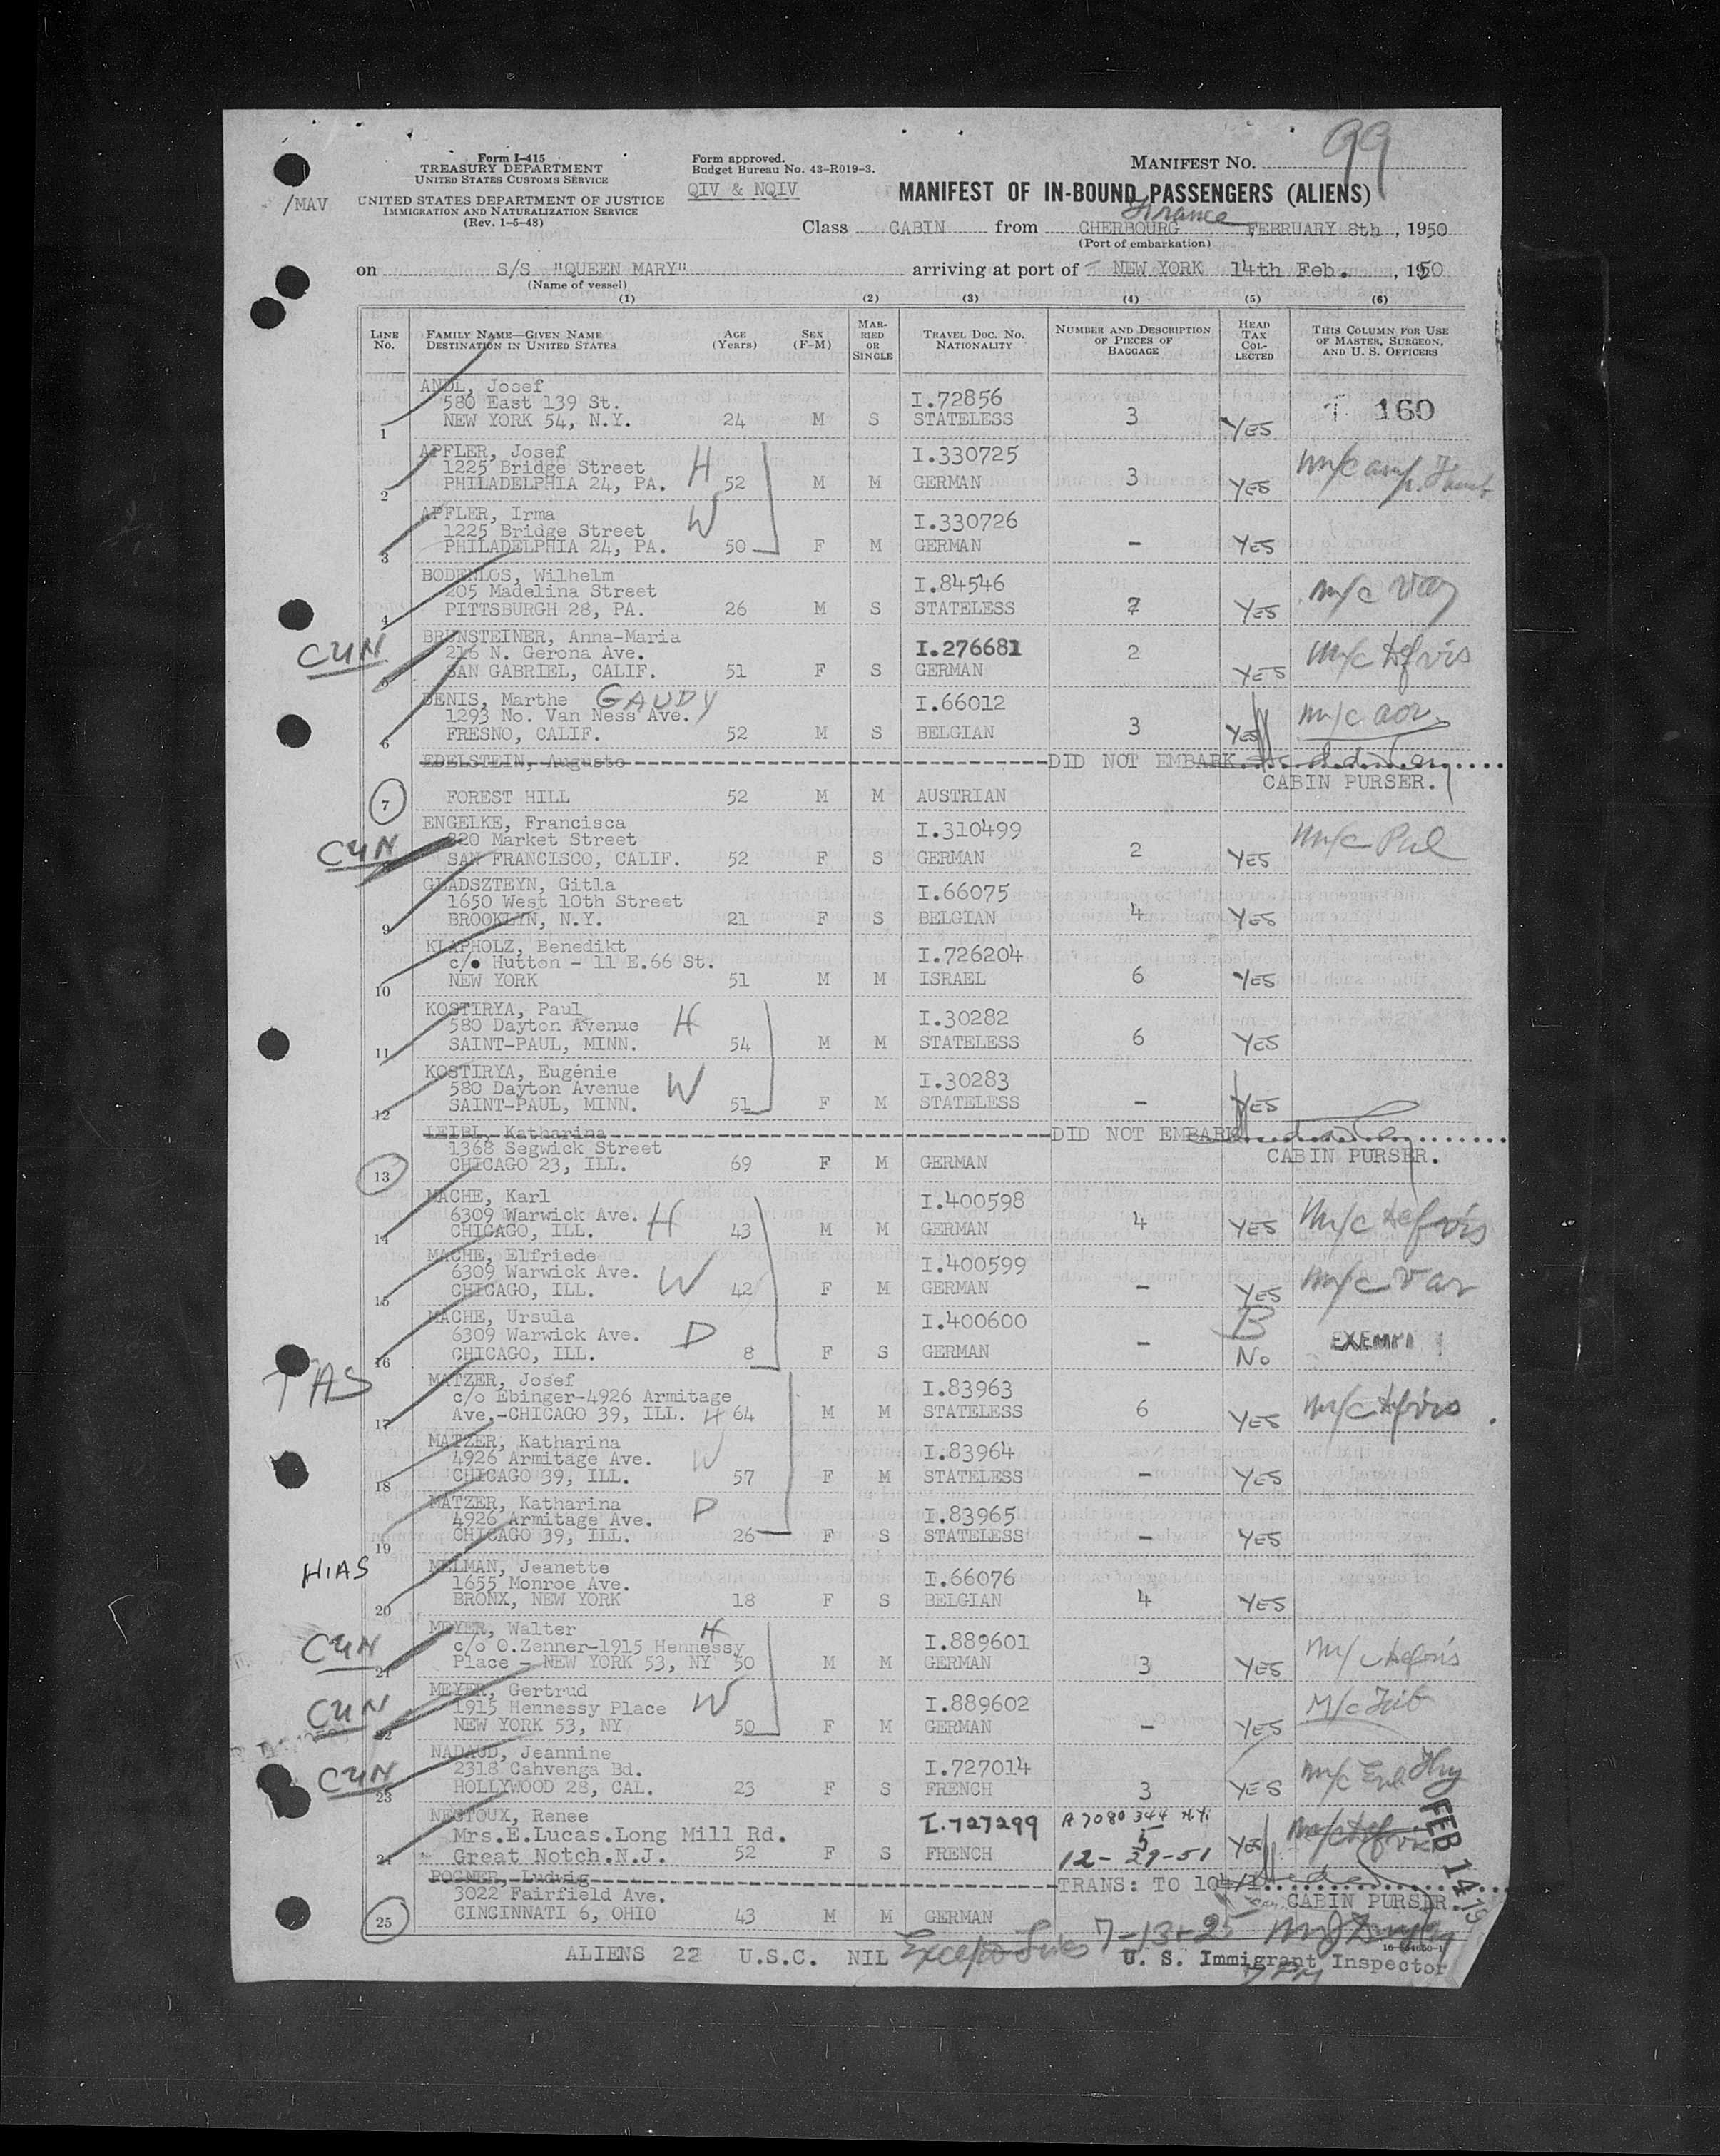 99
Form I-415
TREASURY DEPARTMENT
UNITED STATES CUSTOMS SERVICE
/MAV
UNITED STATES DEPARTMENT OF JUSTICE
IMMIGRATION AND NATURALIZATION SERVICE
(Rev. 1-6-48)
Form approved.
Budget Bureau No. 43-R019-3.
QIV & NQIV
MANIFEST NO.
MANIFEST OF IN-BOUND PASSENGERS (ALIENS)
France
Class CABIN from CHERBOURG FEBRUARY 8th , 1950
(Port of embarkation)
on S/S "QUEEN MARY" arriving at port of NEW YORK 14th Feb. , 1950
(Name of vessel)
(1) (2) (3) (4) (5) (6)
LINE NO. FAMILY NAME—GIVEN NAME DESTINATION IN UNITED STATES AGE (Years) SEX (F-M) MARRIED OR SINGLE TRAVEL DOC. NO. NATIONALITY NUMBER AND DESCRIPTION OF PIECES OF BAGGAGE HEAD TAX COLLECTED THIS COLUMN FOR USE OF MASTER, SURGEON, AND U. S. OFFICERS
ANDL, Josef I.72856
580 East 139 St. 160
1 NEW YORK 54, N.Y. 24 M S STATELESS 3 YES
APFLER, Josef H I.330725
1225 Bridge Street m/c
2 PHILADELPHIA 24, PA. 52 M M GERMAN 3 YES
APFLER, Irma W I.330726
1225 Bridge Street
3 PHILADELPHIA 24, PA. 50 F M GERMAN - YES
BODENLOS, Wilhelm I.84546
205 Madelina Street m/c
4 PITTSBURGH 28, PA. 26 M S STATELESS 7 YES
CUN BRUNSTEINER, Anna-Maria I.276681
216 N. Gerona Ave. m/c def vis
5 SAN GABRIEL, CALIF. 51 F S GERMAN 2 YES
DENIS, Marthe GAUDY I.66012
1293 No. Van Ness Ave. m/c
6 FRESNO, CALIF. 52 M S BELGIAN 3 YES
EDELSTEIN, Auguste DID NOT EMBARK
CABIN PURSER.
7 FOREST HILL 52 M M AUSTRIAN
ENGELKE, Francisca I.310499
CUN 820 Market Street m/c
SAN FRANCISCO, CALIF. 52 F S GERMAN 2 YES
GLADSZTEYN, Gitla I.66075
1650 West 10th Street
9 BROOKLYN, N.Y. 21 F S BELGIAN 4 YES
KLAPHOLZ, Benedikt I.726204
c/o Hutton - 11 E.66 St.
10 NEW YORK 51 M M ISRAEL 6 YES
KOSTIRYA, Paul H I.30282
580 Dayton Avenue
11 SAINT-PAUL, MINN. 54 M M STATELESS 6 YES
KOSTIRYA, Eugénie W I.30283
580 Dayton Avenue
12 SAINT-PAUL, MINN. 51 F M STATELESS - YES
LEIBL, Katharina DID NOT EMBARK
1368 Segwick Street CABIN PURSER.
13 CHICAGO 23, ILL. 69 F M GERMAN
MACHE, Karl H I.400598
6309 Warwick Ave. m/c def vis
14 CHICAGO, ILL. 43 M M GERMAN 4 YES
MACHE, Elfriede W I.400599
6309 Warwick Ave. m/c var
15 CHICAGO, ILL. 42 F M GERMAN - YES
MACHE, Ursula D I.400600 B
6309 Warwick Ave. EXEMPT
16 CHICAGO, ILL. 8 F S GERMAN - No
TAS MATZER, Josef I.83963
c/o Ebinger-4926 Armitage m/c def vis
17 Ave,-CHICAGO 39, ILL. H 64 M M STATELESS 6 YES
MATZER, Katharina W I.83964
4926 Armitage Ave.
18 CHICAGO 39, ILL. 57 F M STATELESS - YES
MATZER, Katharina D I.83965
4926 Armitage Ave.
19 CHICAGO 39, ILL. 26 F S STATELESS - YES
HIAS MELMAN, Jeanette I.66076
1655 Monroe Ave.
20 BRONX, NEW YORK 18 F S BELGIAN 4 YES
CUN MEYER, Walter H I.889601
c/o O.Zenner-1915 Hennessy m/c def vis
21 Place - NEW YORK 53, NY 50 M M GERMAN 3 YES
CUN MEYER, Gertrud W I.889602
1915 Hennessy Place M/c
22 NEW YORK 53, NY 50 F M GERMAN - YES
CUN NADAUD, Jeannine I.727014
2318 Cahvenga Bd. m/c
23 HOLLYWOOD 28, CAL. 23 F S FRENCH 3 YES
NESTOUX, Renee I.727299 A7080 344 N.Y.
Mrs.E.Lucas.Long Mill Rd. 5 m/c def vis
24 Great Notch.N.J. 52 F S FRENCH 12-27-51 YES
FEB 14 19
POGNER, Ludwig TRANS: TO 10
3022 Fairfield Ave. CABIN PURSER.
25 CINCINNATI 6, OHIO 43 M M GERMAN
ALIENS 22 U.S.C. NIL Except Lines 7-13+25
U. S. Immigrant Inspector
7 PM